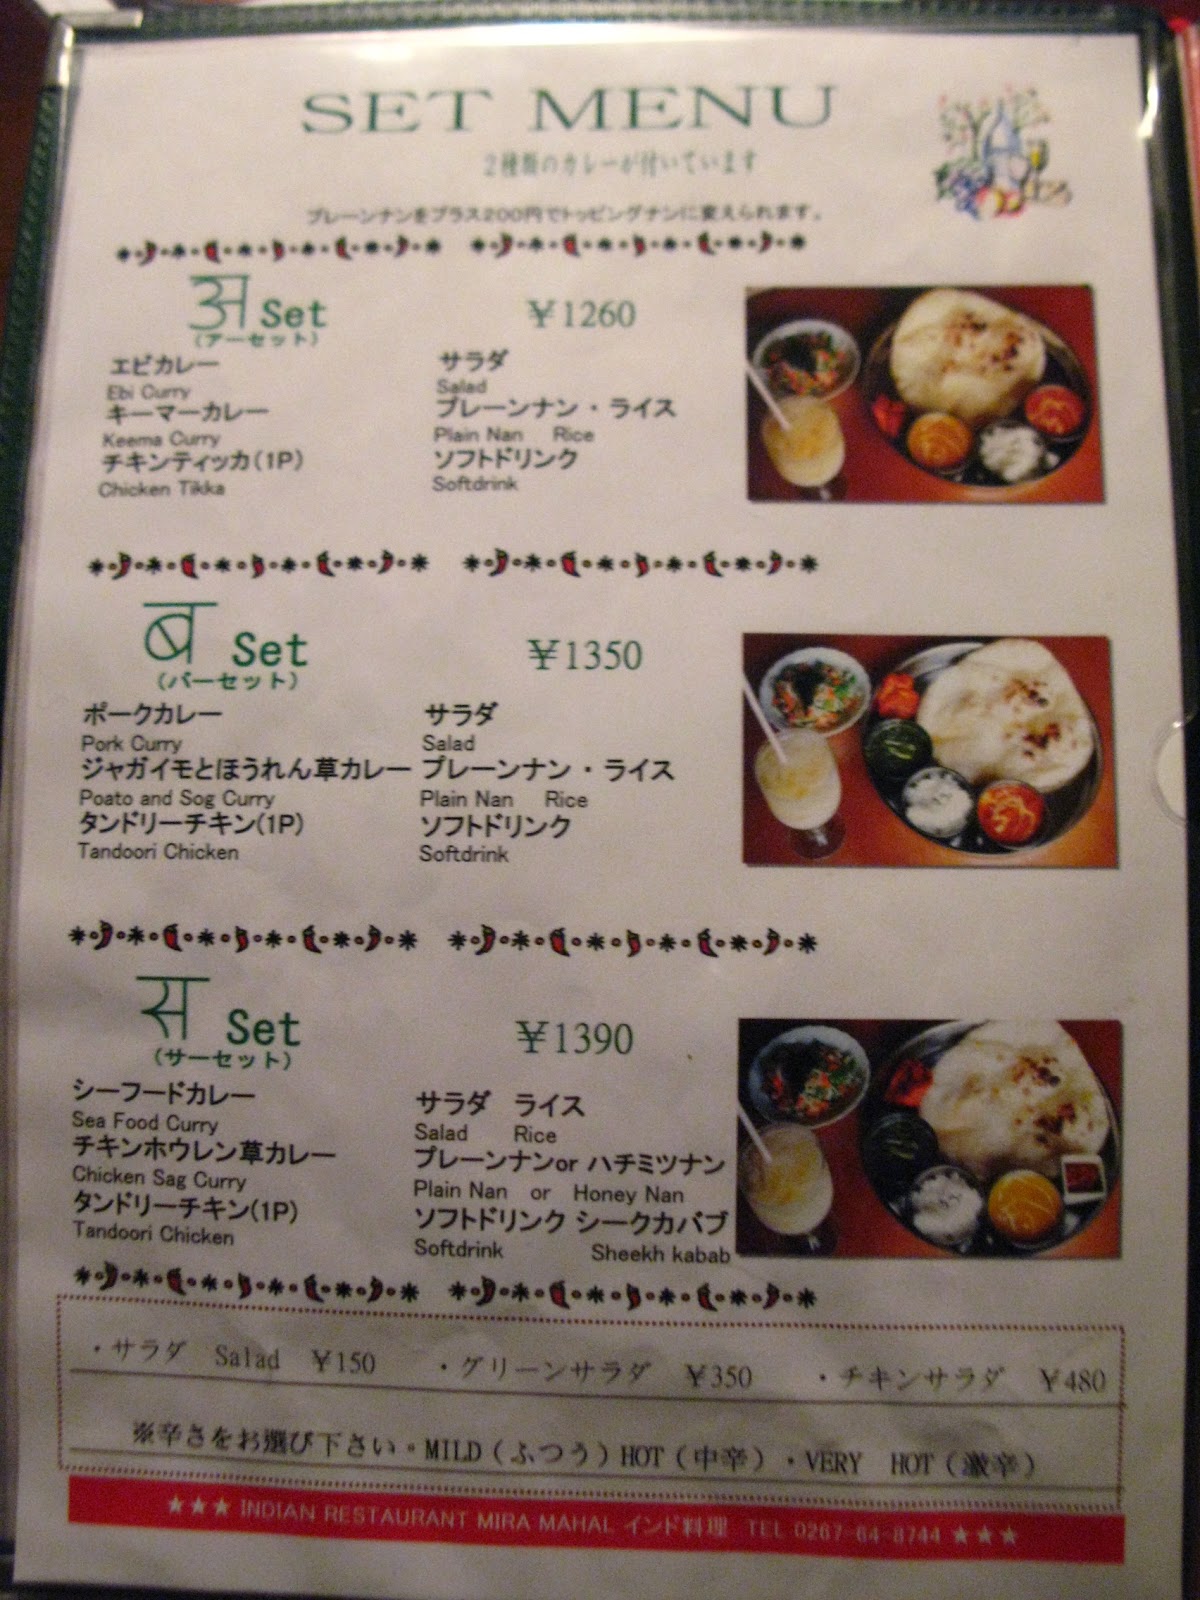 SET MENU
2種類のカレーが付いています
プレーンナンをプラス200円でトッピングナンに変えられます。
अ Set ￥1260
(アーセット)
エビカレー サラダ
Ebi Curry Salad
キーマーカレー プレーンナン・ライス
Keema Curry Plain Nan Rice
チキンティッカ(1P) ソフトドリンク
Chicken Tikka Softdrink
ब Set ￥1350
(バーセット)
ポークカレー サラダ
Pork Curry Salad
ジャガイモとほうれん草カレー プレーンナン・ライス
Poato and Sog Curry Plain Nan Rice
タンドリーチキン(1P) ソフトドリンク
Tandoori Chicken Softdrink
स Set ￥1390
(サーセット)
シーフードカレー サラダ ライス
Sea Food Curry Salad Rice
チキンホウレン草カレー プレーンナンor ハチミツナン
Chicken Sag Curry Plain Nan or Honey Nan
タンドリーチキン(1P) ソフトドリンク シークカバブ
Tandoori Chicken Softdrink Sheekh kabab
・サラダ Salad ￥150 ・グリーンサラダ ￥350 ・チキンサラダ ￥480
※辛さをお選び下さい。MILD(ふつう)HOT(中辛)・VERY HOT(激辛)
★★★ INDIAN RESTAURANT MIRA MAHAL インド料理 TEL 0267-64-8744 ★★★